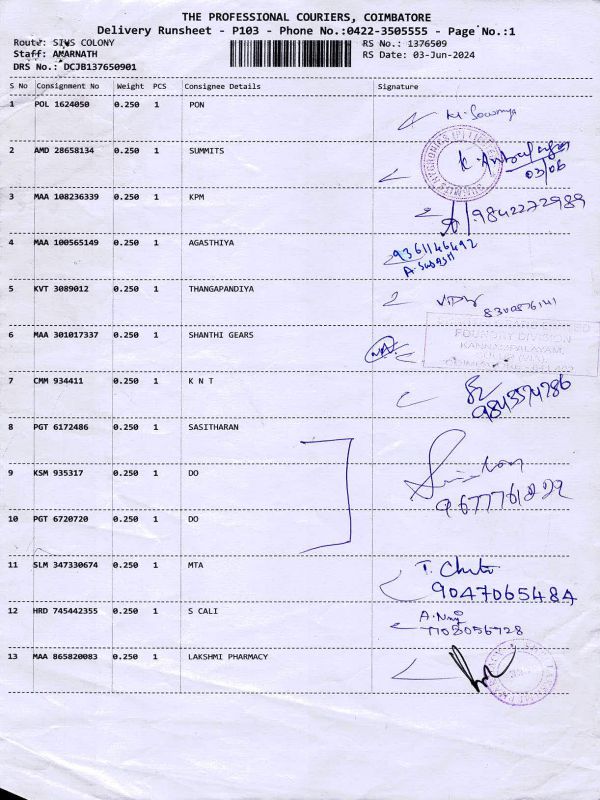 THE PROFESSIONAL COURIERS, COIMBATORE
Delivery Runsheet - P103 - Phone No.:0422-3505555 - Page No.:1
Route: SIVS COLONY
RS No.: 1376509
Staff: AMARNATH
RS Date: 03-Jun-2024
DRS No.: DCJB137650901
S No Consignment No Weight PCS Consignee Details Signature
1 POL 1624050 0.250 1 PON
2 AMD 28658134 0.250 1 SUMMITS
03/06
3 MAA 108236339 0.250 1 KPM
9842272989
4 MAA 100565149 0.250 1 AGASTHIYA
9361146492
5 KVT 3089012 0.250 1 THANGAPANDIYA
6 MAA 301017337 0.250 1 SHANTHI GEARS
FOUNDRY DIVISION
KANNAMPALAYAM,
7 CMM 934411 0.250 1 K N T
8 PGT 6172486 0.250 1 SASITHARAN
9 KSM 935317 0.250 1 DO
10 PGT 6720720 0.250 1 DO
11 SLM 347330674 0.250 1 MTA
9047065484
12 HRD 745442355 0.250 1 S CALI
13 MAA 865820083 0.250 1 LAKSHMI PHARMACY